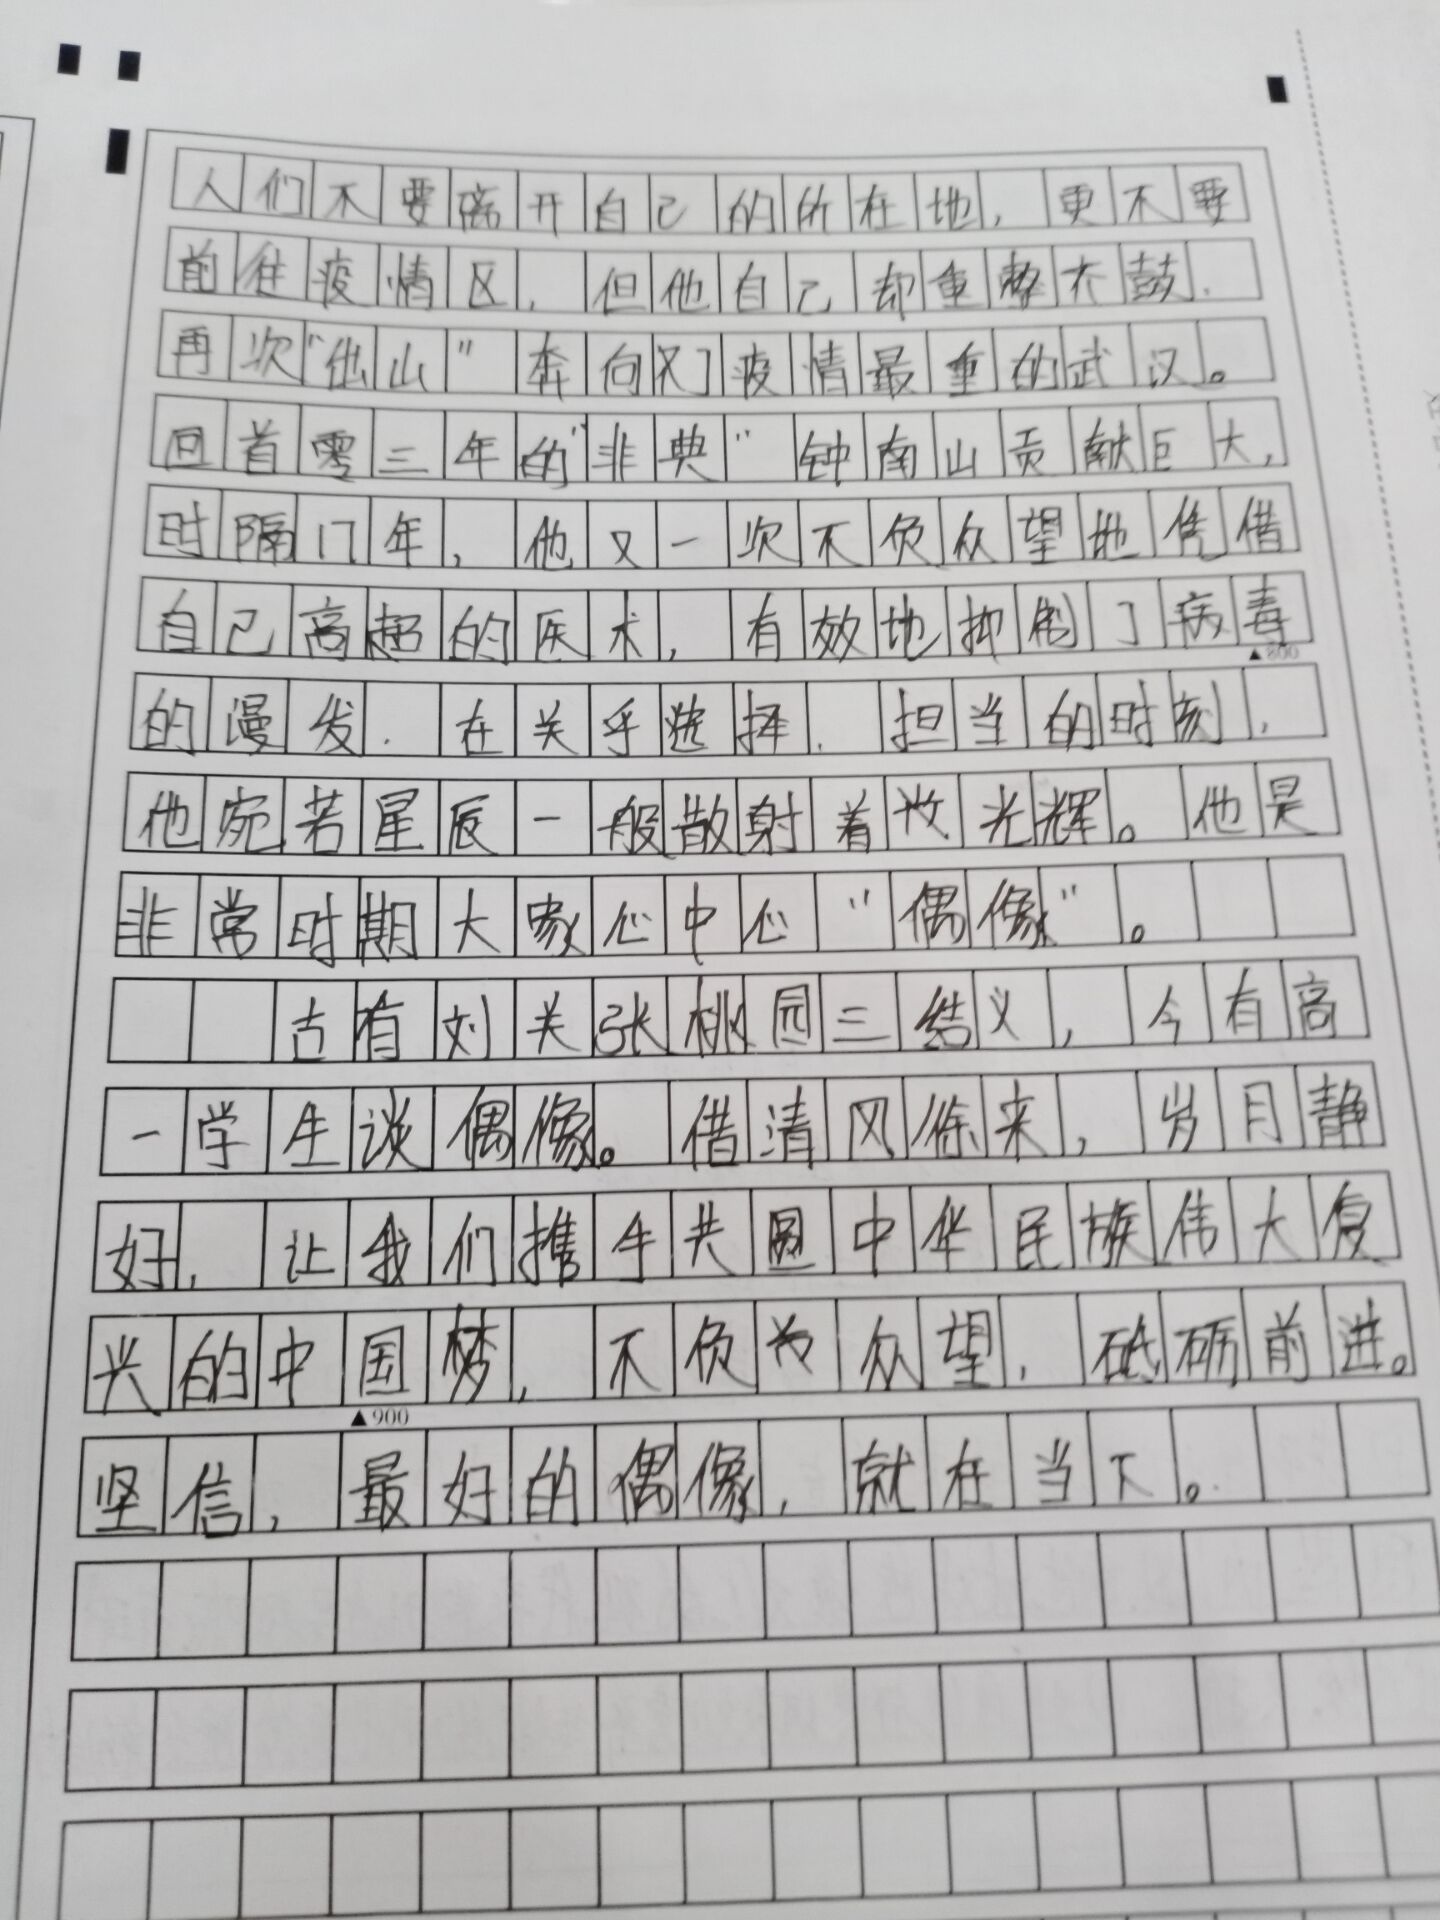 人们不要离开自己的所在地，更不要
前往疫情区，但他自己却重整衣鼓，
再次“出山”奔向了疫情最重的武汉。
回首零三年的“非典”钟南山贡献巨大，
时隔17年，他又一次不负众望地凭借
自己高超的医术，有效地抑制了病毒
▲800
的漫发．在关乎选择、担当的时刻，
他宛若星辰一般散射着光辉。他是
非常时期大家心中心“偶像”。
古有刘关张桃园三结义，今有高
一学生谈偶像。借清风徐来，岁月静
好，让我们携手共圆中华民族伟大复
兴的中国梦，不负众望，砥砺前进。
▲900
坚信，最好的偶像，就在当下。